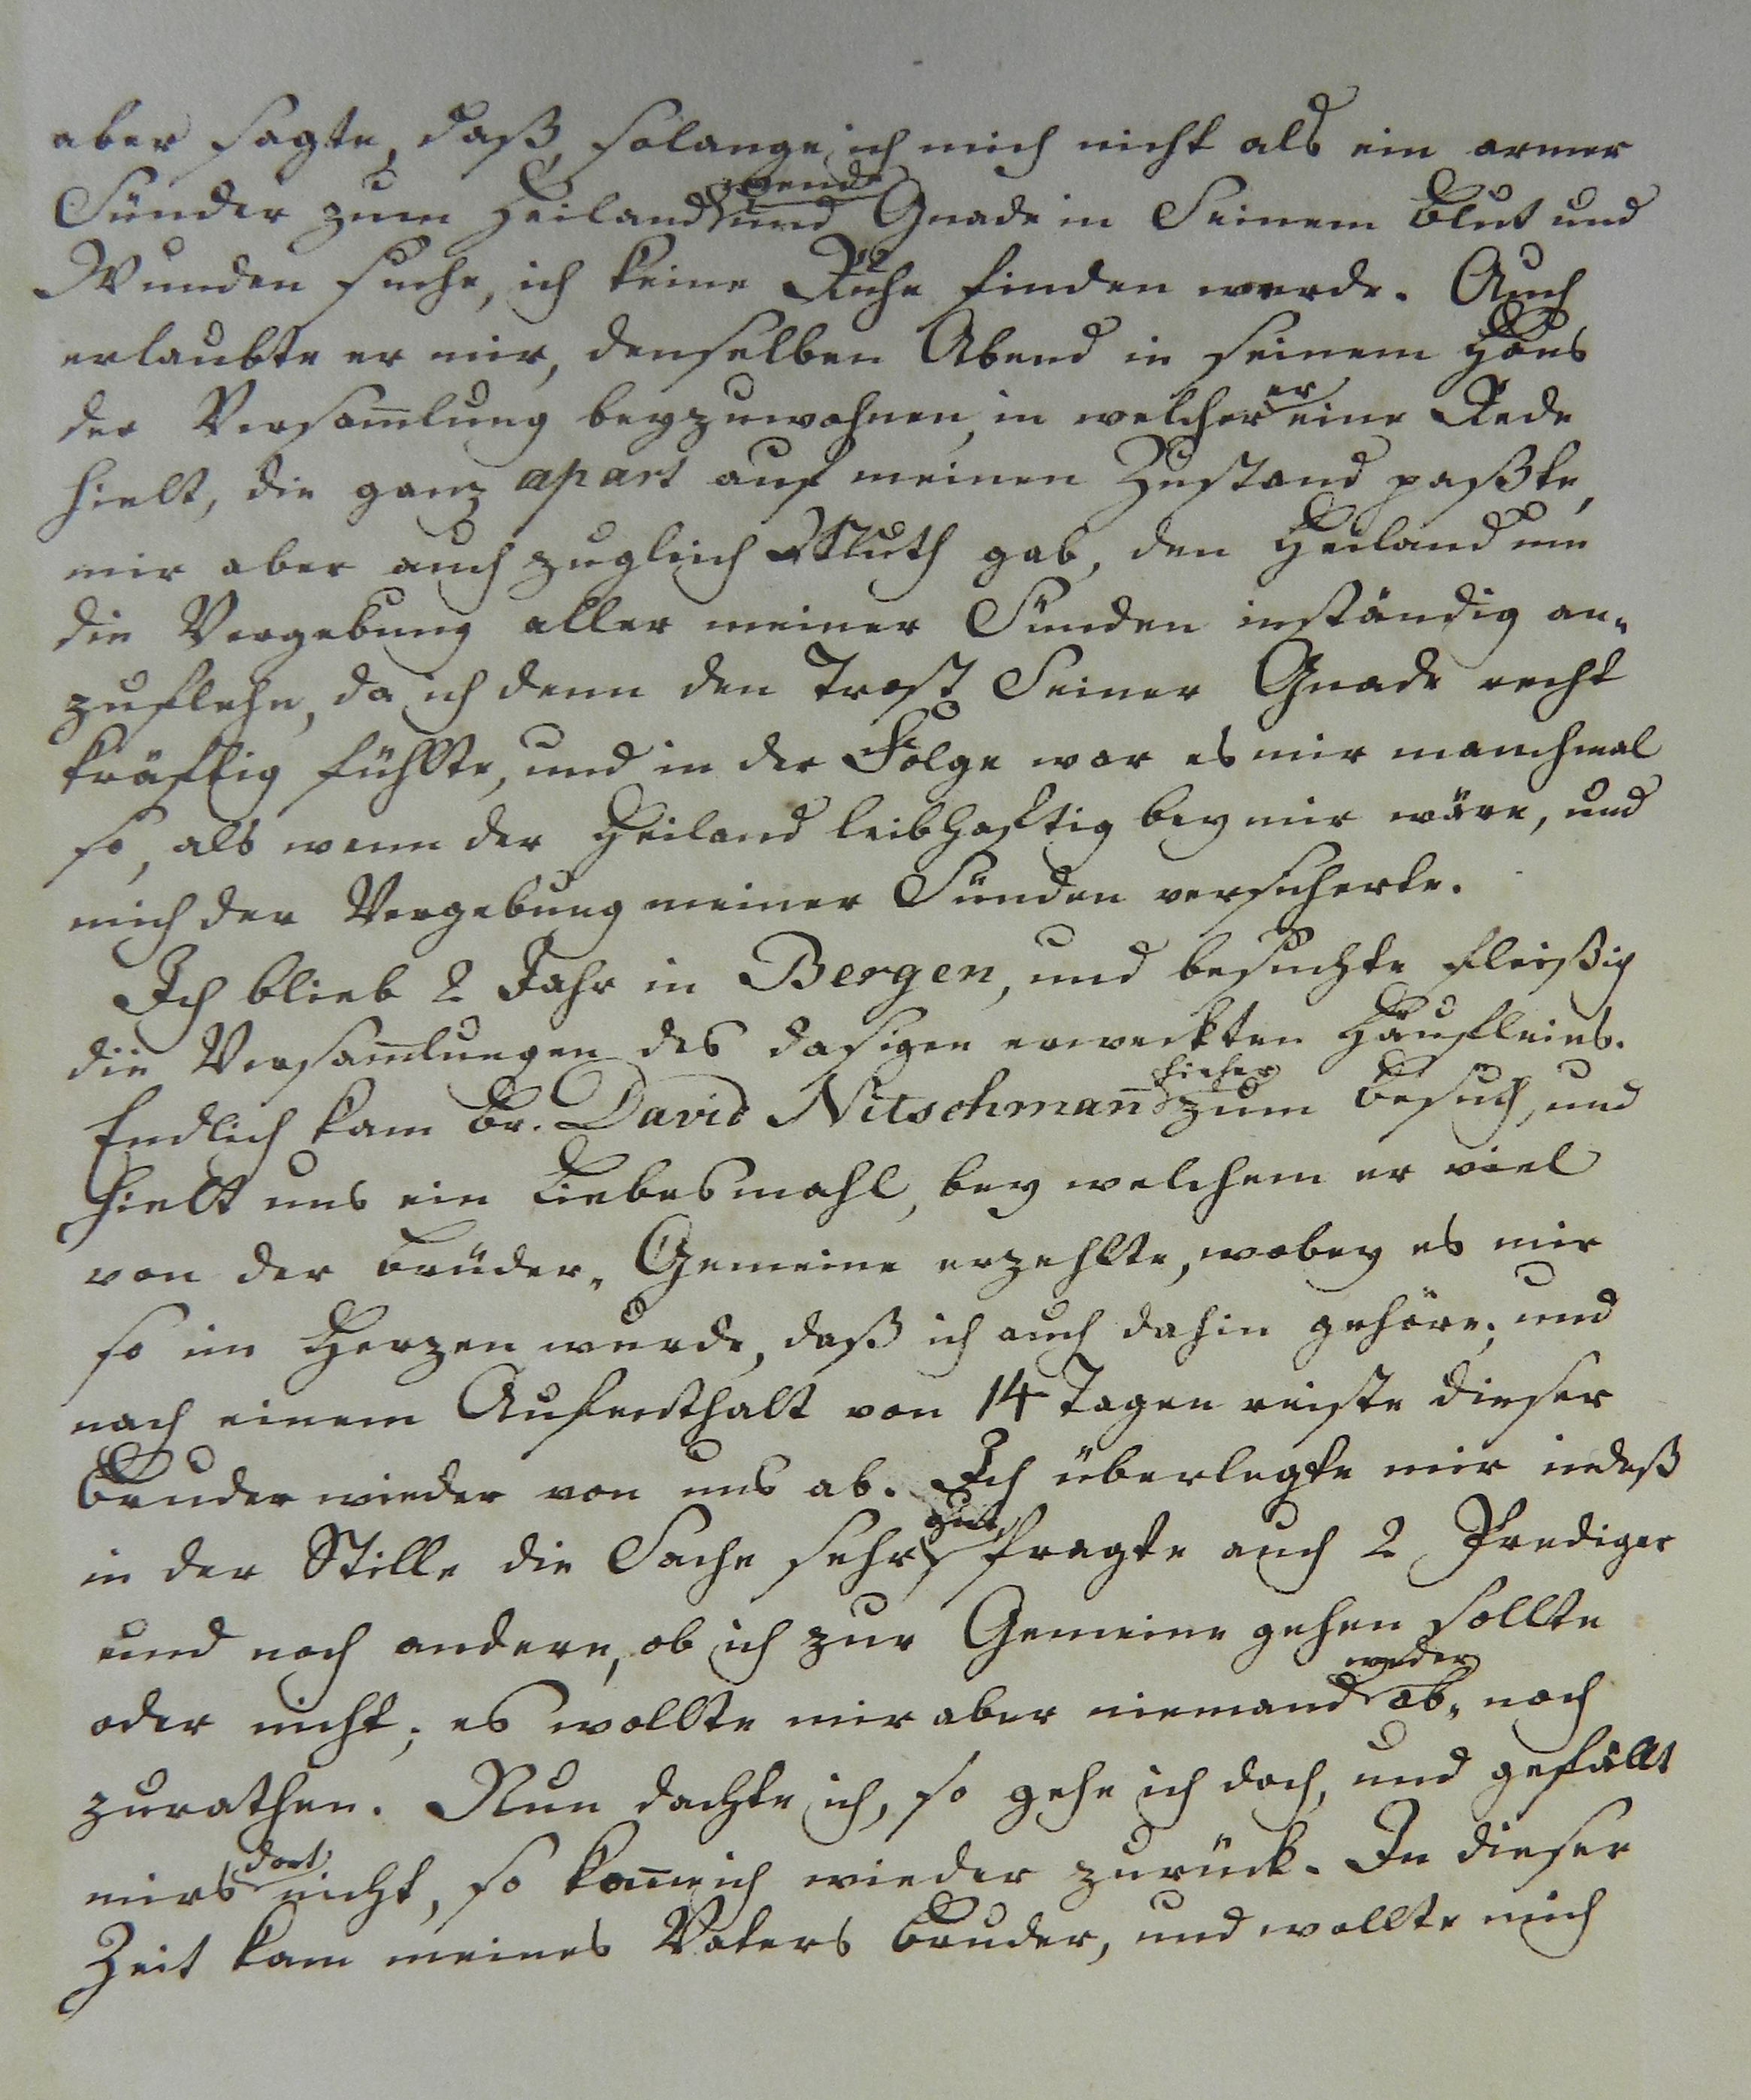 aber sagte, daß, solange ich mich nicht als ein armer
Sünder zum Heiland wende und Gnade in Seinem Blut und
Wunden suche, ich keine Ruhe finden werde. Auch
erlaubte er mir, denselben Abend in seinem Haus
der Versam̅lung beyzuwohnen, in welcher er eine Rede
hielt, die ganz apart auf meinen Zustand paßte,
mir aber auch zugleich Muth gab, den Heiland um
die Vergebung aller meiner Sünden inständig an-
zuflehn, da ich denn den Trost Seiner Gnade recht
kräftig fühlte, und in der Folge war es mir manchmal
so, als wenn der Heiland leibhaftig bey mir wäre, und
mich der Vergebung meiner Sünden versicherte.
Ich blieb 2 Jahr in Bergen, und besuchte fleißig
die Versam̅lungen des dasigen erweckten Häufleins.
Endlich kam Br. David Nitschman̅ hieher zum Besuch, und
hielt uns ein Liebesmahl, bey welchem er viel
von der Brüder-Gemeine erzehlte, wobey es mir
so im Herzen wurde, daß ich auch dahin gehöre; und
nach einem Aufenthalt von 14 Tagen reiste dieser
Bruder wieder von uns ab. Ich überlegte mir indeß
in der Stille die Sache sehr gut, fragte auch 2 Prediger
und noch andere, ob ich zur Gemeine gehen sollte
oder nicht; es wollte mir aber niemand weder ab- noch
zurathen. Nun dachte ich, so gehe ich doch, und gefällt
mirs dort nicht, so kan̅ ich wieder zurück. In dieser
Zeit kam meines Vaters Bruder, und wollte mich